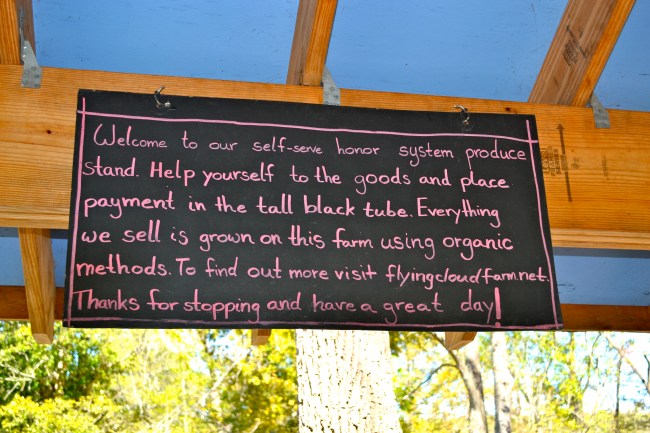 Welcome to our self-serve honor system produce
stand. Help yourself to the goods and place
payment in the tall black tube. Everything
we sell is grown on this farm using organic
methods. To find out more visit flyingcloudfarm.net.
Thanks for stopping and have a great day!